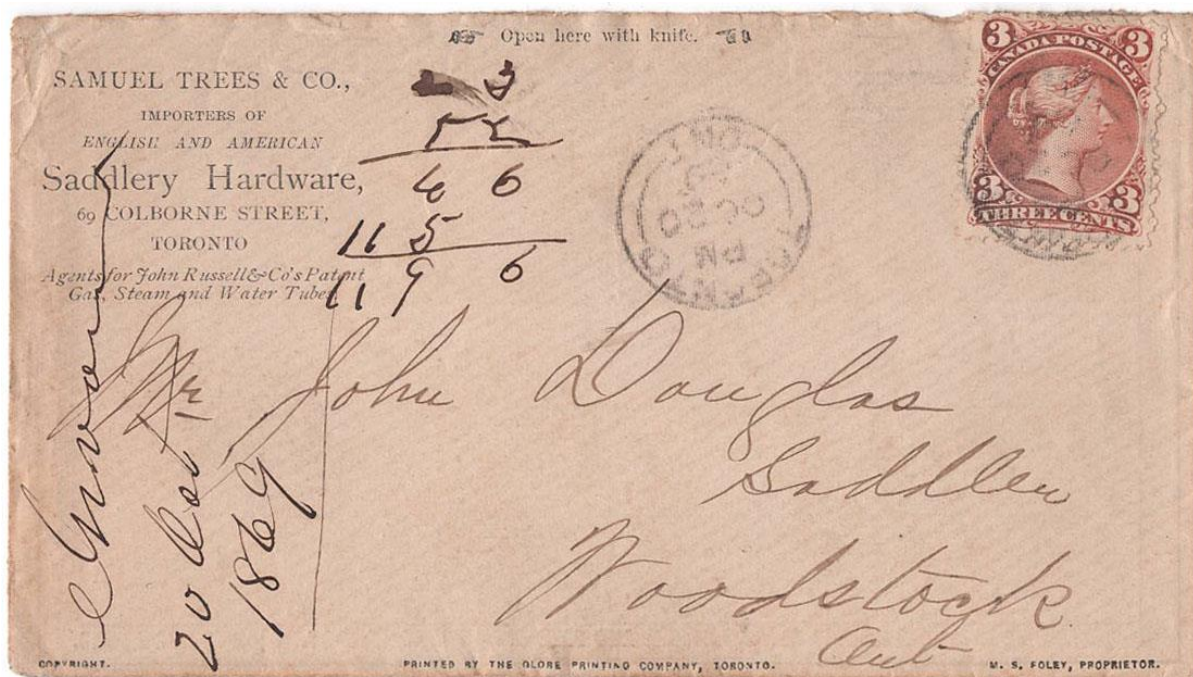 Open here with knife.
SAMUEL TREES & CO.,
IMPORTERS OF
ENGLISH AND AMERICAN
Saddlery Hardware,
69 COLBORNE STREET,
TORONTO
Agents for John Russell & Co's Patent
Gas, Steam and Water Tubes
3
4 6
11 5
11 9 6
TORONTO
ONT
PM
OC 20
3 3
CANADA POSTAGE
3 3
THREE CENTS
Mr John Douglas
Saddler
Woodstock
Ont
20 Oct
1869
COPYRIGHT.
PRINTED BY THE GLOBE PRINTING COMPANY, TORONTO.
M. S. FOLEY, PROPRIETOR.